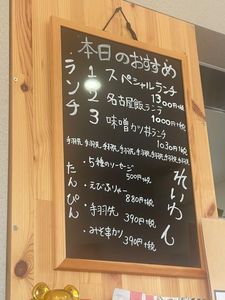 本日のおすすめ
ランチ
1 スペシャルランチ
1300円+税
2 名古屋飯ランチ
1000円+税
3 味噌カツ丼ランチ
1030円+税
手羽先 手羽先 手羽先 手羽先 手羽先 手羽先 手羽先
たんぴん
・5種のソーセージ
500円+税
・えびふりゃー
880円+税
・手羽先 390円+税
・みそ串カツ
390円+税